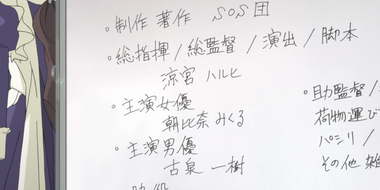 ・制作 著作 SOS団
・総指揮/総監督/演出/脚本
涼宮 ハルヒ
・主演女優
朝比奈 みくる
・主演男優
古泉 一樹
・助監督/
荷物運び
パシリ/
その他 雑